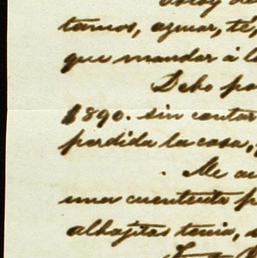 tamos, azucar, té,
que mandar á l
Debo pa
1890. sin contar
perdida la casa,
Me au
una cuentecita p
alhajitas tenia,